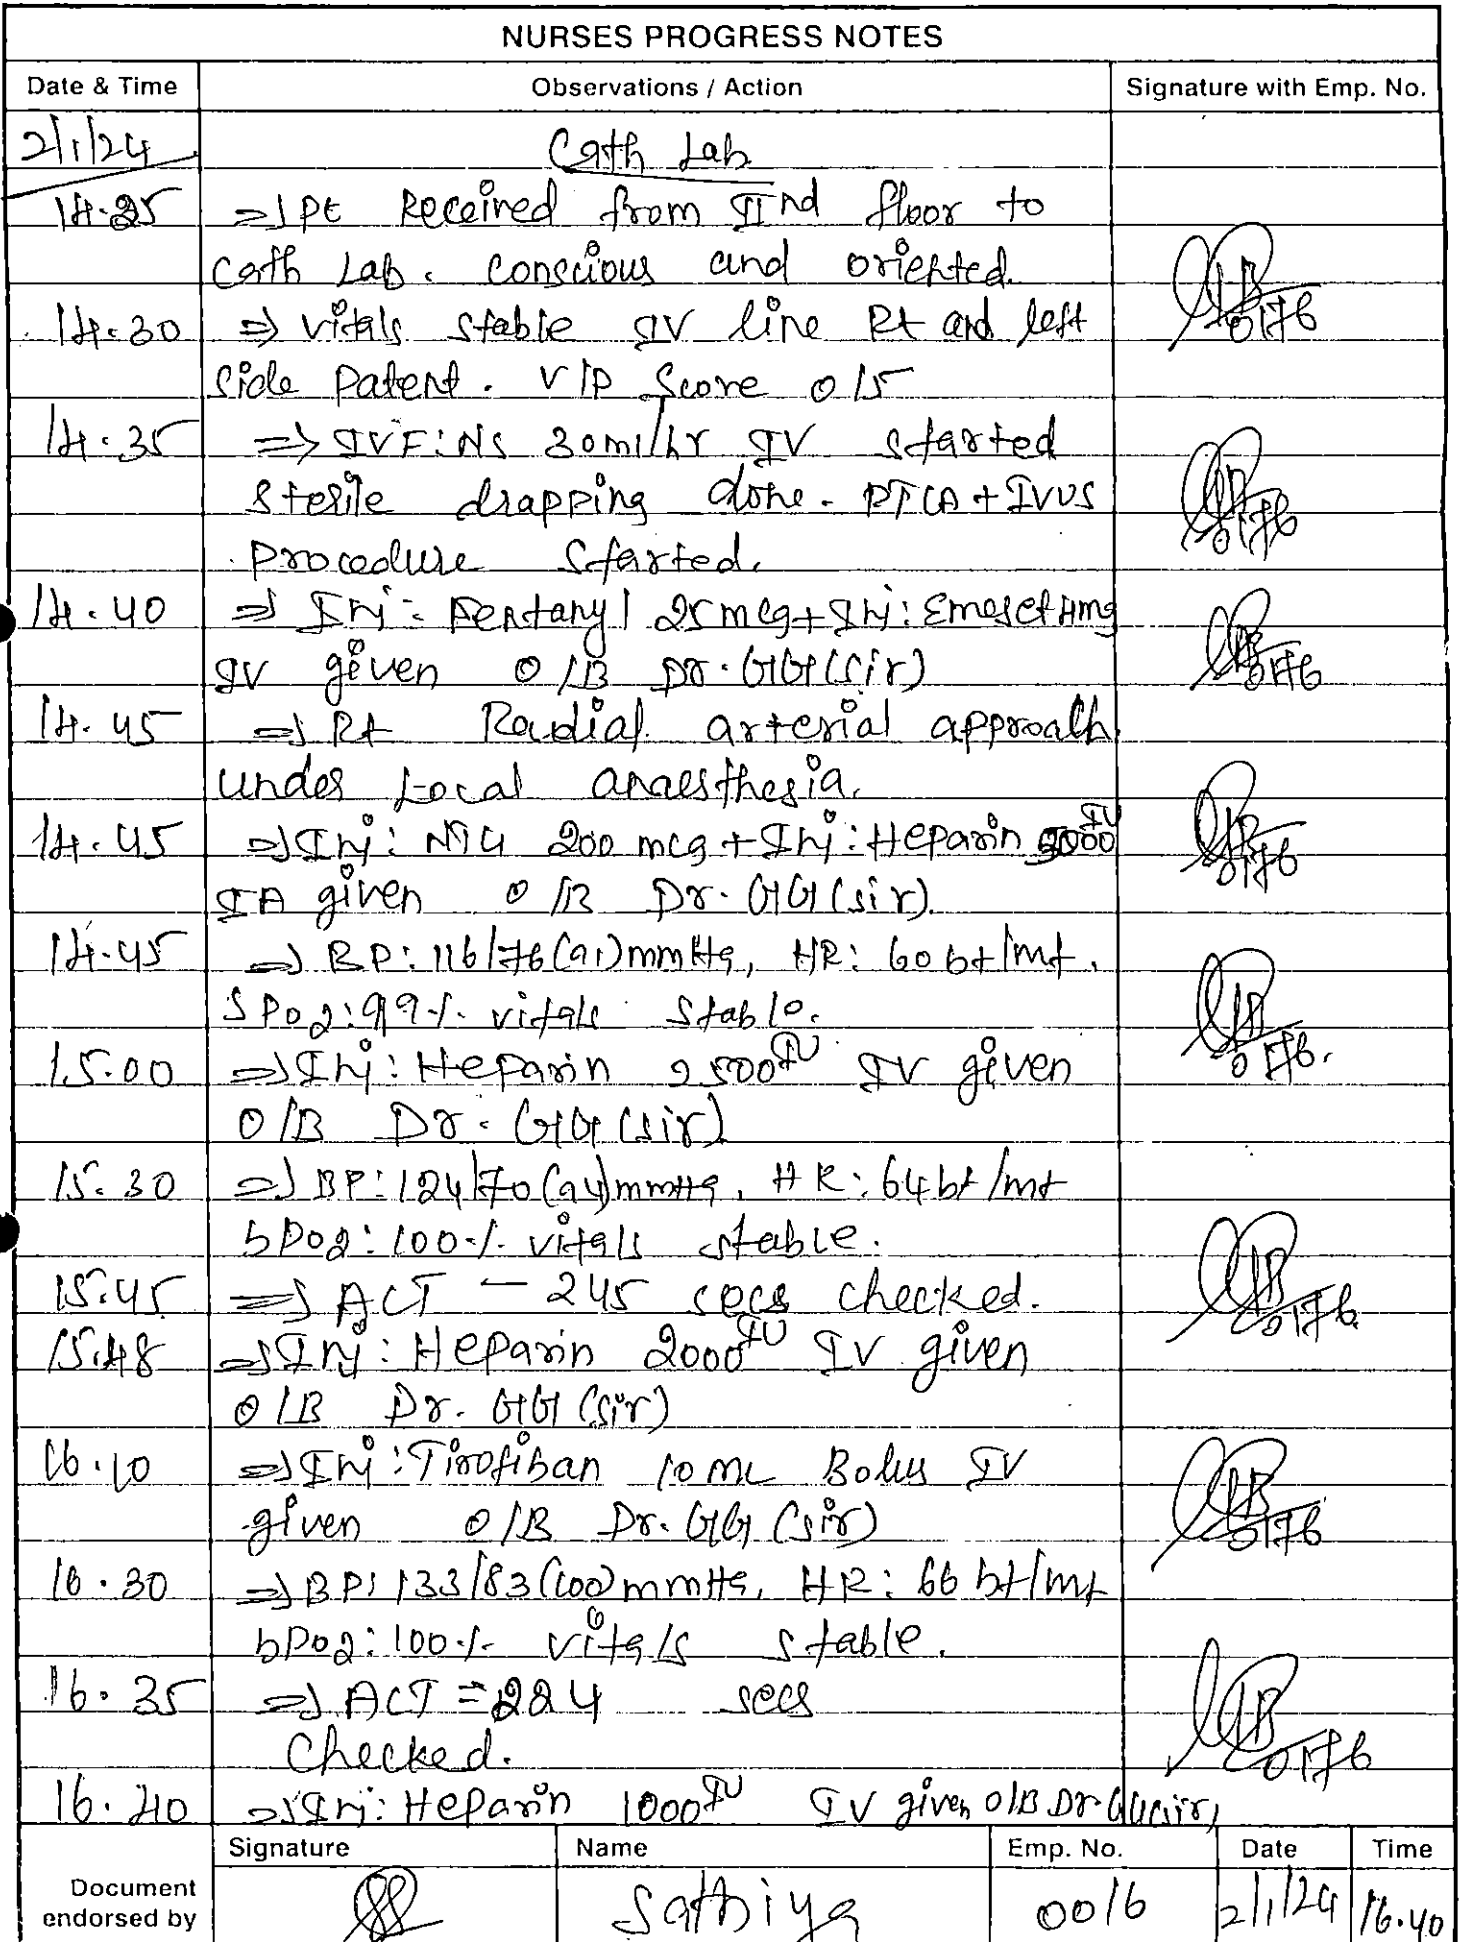 NURSES PROGRESS NOTES
Date & Time Observations / Action Signature with Emp. No.
2/1/24 Cath Lab
14.25 => Pt Received from IInd floor to
Cath Lab. conscious and oriented.
14.30 => vitals stable IV line Rt and left 0176
side Patent. VIP Score 0/5
14.35 => IVF: NS 30ml/hr IV started
Sterile drapping done. PTCA + IVUS 0176
Procedure Started.
14.40 => Inj: Fentanyl 25 mcg + Inj: Emeset 4mg
IV given O/B Dr. GG (sir) 0176
14.45 => Rt Radial arterial approach
under Local anaesthesia.
14.45 => Inj: NTG 200 mcg + Inj: Heparin IU 0176
IA given O/B Dr. GG (sir).
14.45 => BP: 116/76 (91) mmHg, HR: 60 bt/mt.
SPO2: 99% vitals stable.
15.00 => Inj: Heparin 2500 IU IV given 0176.
O/B Dr. GG (sir)
15.30 => BP: 124/70 (94) mmHg, HR: 64 bt/mt
SPO2: 100% vitals stable.
15.45 => ACT - 245 secs checked. 0176
15.48 => Inj: Heparin 2000 IU IV given
O/B Dr. GG (sir)
16.10 => Inj: Tirofiban 10 ML Bolus IV
given O/B Dr. GG (sir) 0176
16.30 => BP: 133/83 (100) mmHg, HR: 66 bt/mt
SPO2: 100% vitals stable.
16.35 => ACT = 224 secs
Checked. 0176
16.40 => Inj: Heparin 1000 IU IV given O/B Dr. GG (sir)
Signature Name Emp. No. Date Time
Document
endorsed by Sathiya 0016 2/1/24 16.40